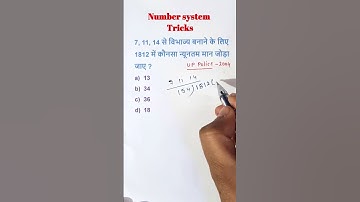 Number system
Tricks
7, 11, 14 से विभाज्य बनाने के लिए
1812 में कौनसा न्यूनतम मान जोड़ा
जाए ?
UP Police - 2004
a) 13
b) 34
c) 36
d) 18
7 11 14
154)1812(